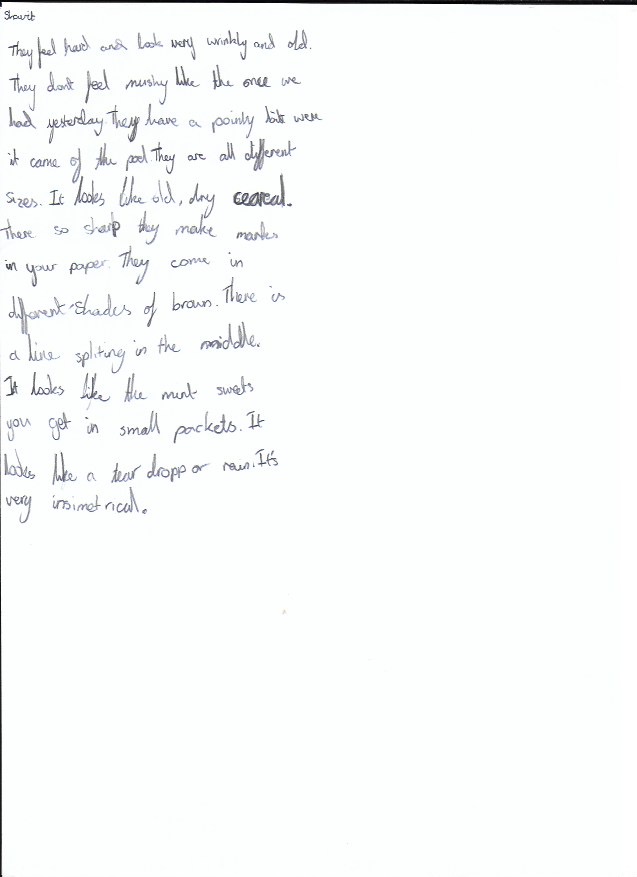 They feel hard and look very wrinkly and old.
They dont feel mushy like the once we
had yesterday. They have a pointy bit were
it came of the pod. They are all different
sizes. It looks like old, dry cearcal.
There so sharp they make marks
in your paper. They come in
different shades of brown. There is
a line spliting in the middle.
It looks like the mint sweets
you get in small packets. It
looks like a tear dropp or rain. It's
very insimetrical.